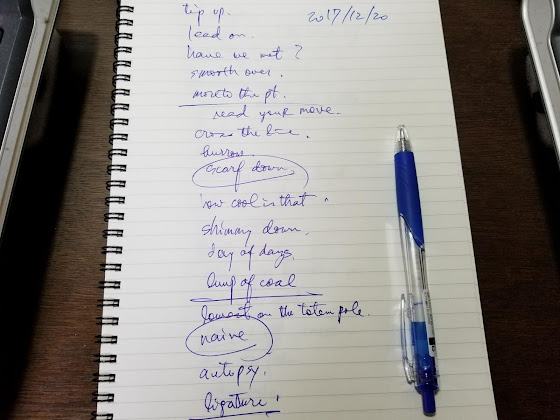 trip up.
2017/12/20
lead on.
have we met?
smooth over.
more to the pt.
read your move.
cross the line.
burrow.
scarf down.
how cool is that.
shimmy down.
day of days.
lump of coal
lowest on the totem pole.
naive
autopsy.
ligature!